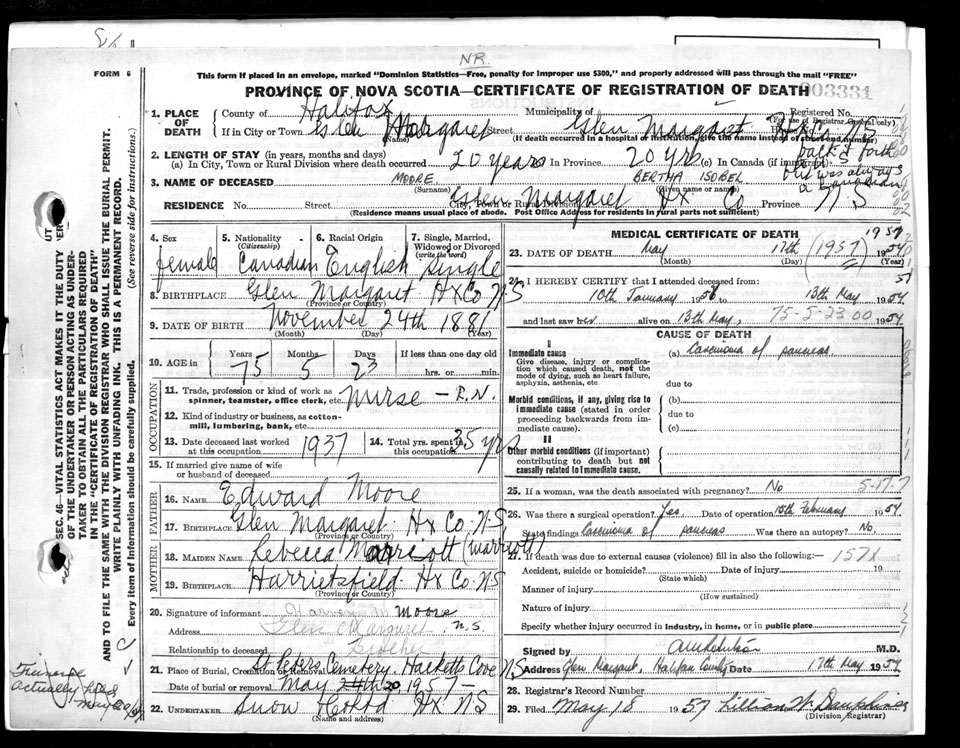 NR.
FORM 6
This form if placed in an envelope, marked "Dominion Statistics—Free, penalty for improper use $300," and properly addressed will pass through the mail "FREE"
PROVINCE OF NOVA SCOTIA—CERTIFICATE OF REGISTRATION OF DEATH
003331
1. PLACE OF DEATH
County of Halifax
Municipality of
Registered No.
(For use of Registrar General only)
If in City or Town Glen Margaret Street Glen Margaret Hx Co N S
(Name)
(If death occurred in a hospital or institution, give the name instead of street and number)
2. LENGTH OF STAY (in years, months and days)
(a) In City, Town or Rural Division where death occurred 20 years In Province 20 yrs (c) In Canada (if immigrant)
back & forth
but was always a Canadian
3. NAME OF DECEASED MOORE. BERTHA ISOBEL
(Surname) (Given name or names)
RESIDENCE No. Street Glen Margaret Hx Co Province N S
City, Town or Rural Division
(Residence means usual place of abode. Post Office Address for residents in rural parts not sufficient)
4. Sex
female
5. Nationality (Citizenship)
Canadian
6. Racial Origin
English
7. Single, Married, Widowed or Divorced (write the word)
single
8. BIRTHPLACE Glen Margaret Hx Co N S
(Province or Country)
9. DATE OF BIRTH November 24th 1881
(Month) (Day) (Year)
10. AGE in Years Months Days If less than one day old
75 5 23 hrs. or min.
OCCUPATION
11. Trade, profession or kind of work as spinner, teamster, office clerk, etc. Nurse — R.N.
12. Kind of industry or business, as cotton-mill, lumbering, bank, etc.
13. Date deceased last worked at this occupation 1937
14. Total yrs. spent in this occupation 25 yrs
15. If married give name of wife or husband of deceased
FATHER
16. NAME Edward Moore
17. BIRTHPLACE Glen Margaret Hx Co N.S.
(Province or Country)
MOTHER
18. MAIDEN NAME Rebecca Marriott (Marriott)
19. BIRTHPLACE Harrietsfield Hx Co NS
(Province or Country)
20. Signature of informant Moore
Address Glen Margaret. N.S.
Relationship to deceased Brother
21. Place of Burial, Cremation or Removal St Peters Cemetery, Hacketts Cove N S
Date of burial or removal May 24th 20 1957
22. UNDERTAKER Snow Hx NS
(Name and address)
MEDICAL CERTIFICATE OF DEATH
1957
23. DATE OF DEATH May 17th (1957) 1954
(Month) (Day) (Year)
24. I HEREBY CERTIFY that I attended deceased from:
10th January 1956 to 13th May 1954
57
and last saw her alive on 13th May, 1954
75-5-23 00
CAUSE OF DEATH
I
Immediate cause (a) Carcinoma of pancreas
Give disease, injury or complication which caused death, not the mode of dying, such as heart failure, asphyxia, asthenia, etc
due to
Morbid conditions, if any, giving rise to immediate cause (stated in order proceeding backwards from immediate).
(b)
due to
(c)
II
Other morbid conditions (if important) contributing to death but not causally related to immediate cause.
25. If a woman, was the death associated with pregnancy? No
5-17-7
26. Was there a surgical operation? Yes Date of operation 15th February 1954
State findings Carcinoma of pancreas Was there an autopsy? No
27. If death was due to external causes (violence) fill in also the following:—
157X
Accident, suicide or homicide? Date of injury 19
(State which)
Manner of injury
(How sustained)
Nature of injury
Specify whether injury occurred in industry, in home, or in public place
Signed by M.D.
Address Glen Margaret, Halifax County 17th May 1954
28. Registrar's Record Number
29. Filed May 18 1957 Lillian W. Dauphinee
(Division Registrar)
SEC. 46—VITAL STATISTICS ACT MAKES IT THE DUTY OF THE UNDERTAKER OR PERSON ACTING AS UNDERTAKER TO OBTAIN ALL THE PARTICULARS REQUIRED IN THE "CERTIFICATE OF REGISTRATION OF DEATH" AND TO FILE THE SAME WITH THE DIVISION REGISTRAR WHO SHALL ISSUE THE BURIAL PERMIT.
WRITE PLAINLY WITH UNFADING INK. THIS IS A PERMANENT RECORD.
Every item of information should be carefully supplied. (See reverse side for instructions.)
actually filed
May